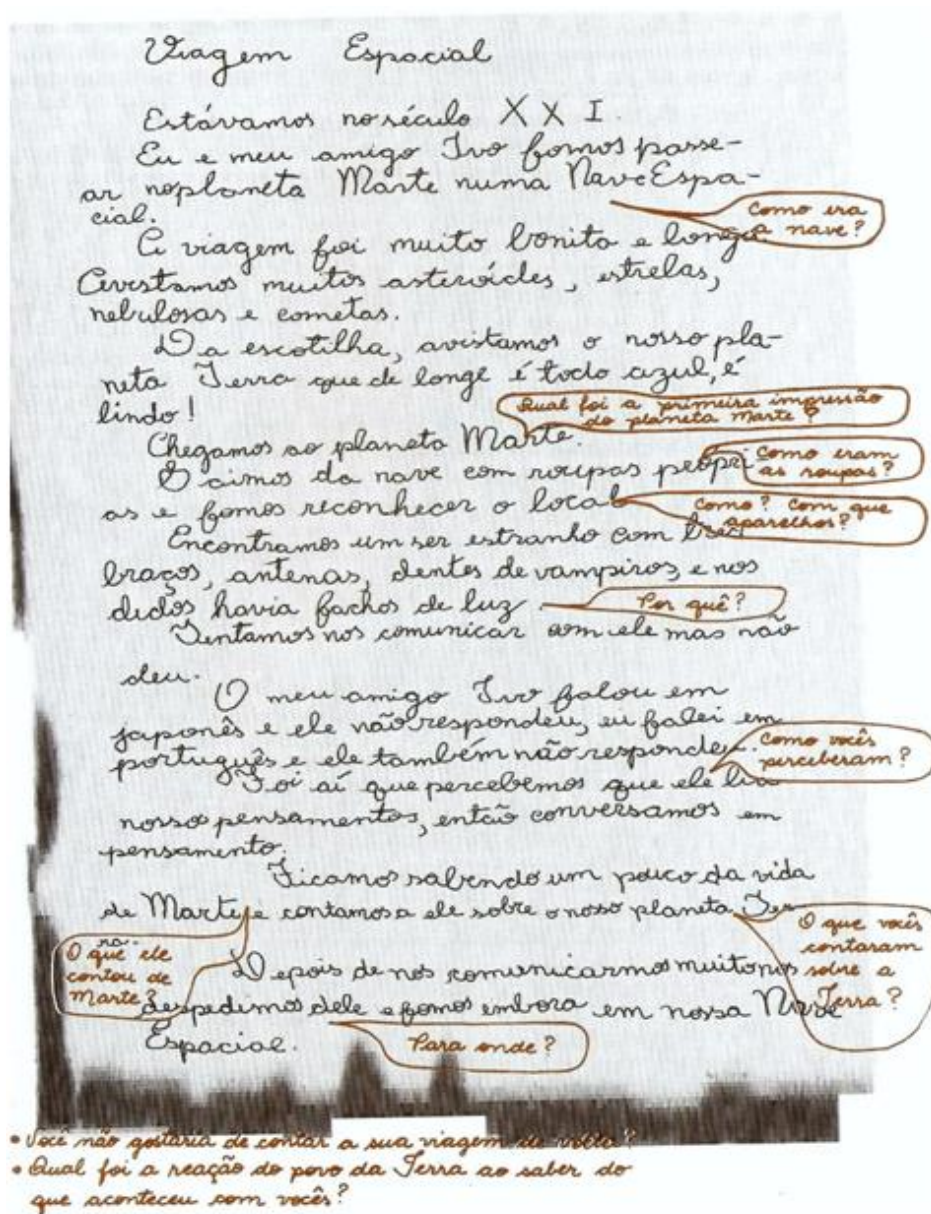 Viagem Espacial
Estávamos no século XXI
Eu e meu amigo Ivo fomos passe-
ar no planeta Marte numa Nave Espa-
cial.
Como era
a nave?
A viagem foi muito bonita e longa.
Avistamos muitos asteróides, estrelas,
nebulosas e cometas.
Da escotilha, avistamos o nosso pla-
neta Terra que de longe é todo azul, é
lindo!
Qual foi a primeira impressão
do planeta Marte?
Chegamos ao planeta Marte.
Saimos da nave com roupas própri-
Como eram
as roupas?
as e fomos reconhecer o local
Como? Com que
aparelhos?
Encontramos um ser estranho com três
braços, antenas, dentes de vampiros, e nos
dedos havia fachos de luz
Por quê?
Tentamos nos comunicar com ele mas não
deu.
O meu amigo Ivo falou em
japonês e ele não respondeu, eu falei em
português e ele também não respondeu.
Como vocês
perceberam?
Foi aí que percebemos que ele lia
nosso pensamentos, então conversamos em
pensamento.
Ficamos sabendo um pouco da vida
de Marte e contamos a ele sobre o noso planeta Ter
ra.
O que ele
contou de
Marte?
O que vocês
contaram
sobre a
Terra?
Depois de nos comunicarmos muito nos
despedimos dele e fomos embora em nossa Nave
Espacial.
Para onde?
• Você não gostaria de contar a sua viagem de volta?
• Qual foi a reação do povo da Terra ao saber do
que aconteceu com vocês?